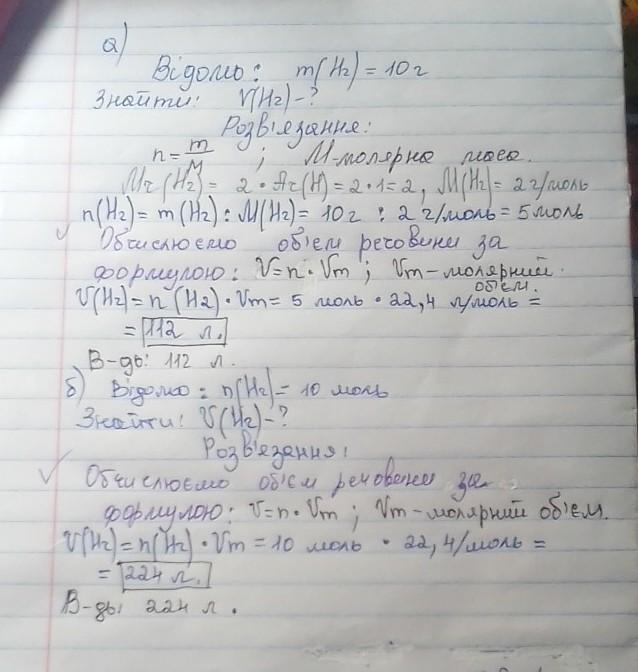 а)
Відомо: m(H₂) = 10 г
Знайти: V(H₂) - ?
Розв'язання:
n = m/M ; M - молярна маса.
Mr(H₂) = 2 · Ar(H) = 2 · 1 = 2, M(H₂) = 2 г/моль
n(H₂) = m(H₂) : M(H₂) = 10 г : 2 г/моль = 5 моль
✓ Обчислюємо об'єм речовини за
формулою: V = n · Vm ; Vm - молярний
об'єм.
V(H₂) = n (H₂) · Vm = 5 моль · 22,4 л/моль =
= 112 л.
В-дь: 112 л.
б) Відомо: n(H₂) = 10 моль
Знайти: V(H₂) - ?
Розв'язання:
✓ Обчислюємо об'єм речовини за
формулою: V = n · Vm ; Vm - молярний об'єм.
V(H₂) = n(H₂) · Vm = 10 моль · 22,4/моль =
= 224 л.
В-дь: 224 л.